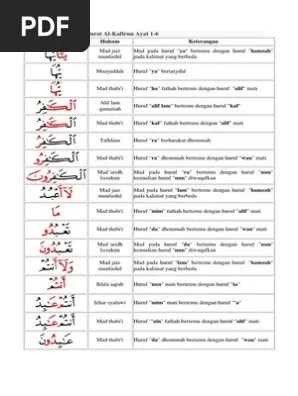 PDF
urat Al-Kafirun Ayat 1-6
Hukum Keterangan
يٰٓاَيُّهَا Mad jaiz munfashil Mad pada huruf "ya" bertemu dengan huruf "hamzah" pada kalimat yang berbeda
Musyaddah Huruf "ya" bertasydid
Mad thabi'i Huruf "ha" fathah bertemu dengan huruf "alif" mati
الْكٰفِرُ Alif lam qamariah Huruf "alif lam" bertemu dengan huruf "kaf"
الْكٰفِرُ Mad thabi'i Huruf "kaf" fathah bertemu dengan huruf "alif" mati
الْكٰفِرُ Tafkhim Huruf "ra" berharakat dhommah
الْكٰفِرُو Mad thabi'i Huruf "ra" dhommah bertemu dengan huruf "wau" mati
الْكٰفِرُوْنَ Mad 'aridh lissukun Mad pada huruf "ra" bertemu dengan huruf "nun" kemudian huruf "nun" diwaqafkan
لَآ اَعْبُدُ Mad jaiz Mad pada huruf "lam" bertemu dengan huruf "hamzah" pada kalimat yang berbeda
مَا Mad thabi'i Huruf "mim" fathah bertemu dengan huruf "alif" mati
تَعْبُدُو Mad thabi'i Huruf "da" dhommah bertemu dengan huruf "wau" mati
تَعْبُدُوْنَ Mad 'aridh lissukun Mad pada huruf "da" bertemu dengan huruf "nun" kemudian huruf "nun" diwaqafkan
وَلَآ اَنْتُمْ Mad jaiz munfashil Mad pada huruf "lam" bertemu dengan huruf "hamzah" pada kalimat yang berbeda
اَنْتُمْ Ikhfa aqrab Huruf "nun" mati bertemu dengan huruf "ta"
اَنْتُمْ عٰبِدُ Izhar syafawi Huruf "mim" mati bertemu dengan huruf "'a"
عٰبِدُ Mad thabi'i Huruf "'ain" fathah bertemu dengan huruf "alif" mati
عٰبِدُوْنَ Mad thabi'i Huruf "da" dhommah bertemu dengan huruf "wau" mati